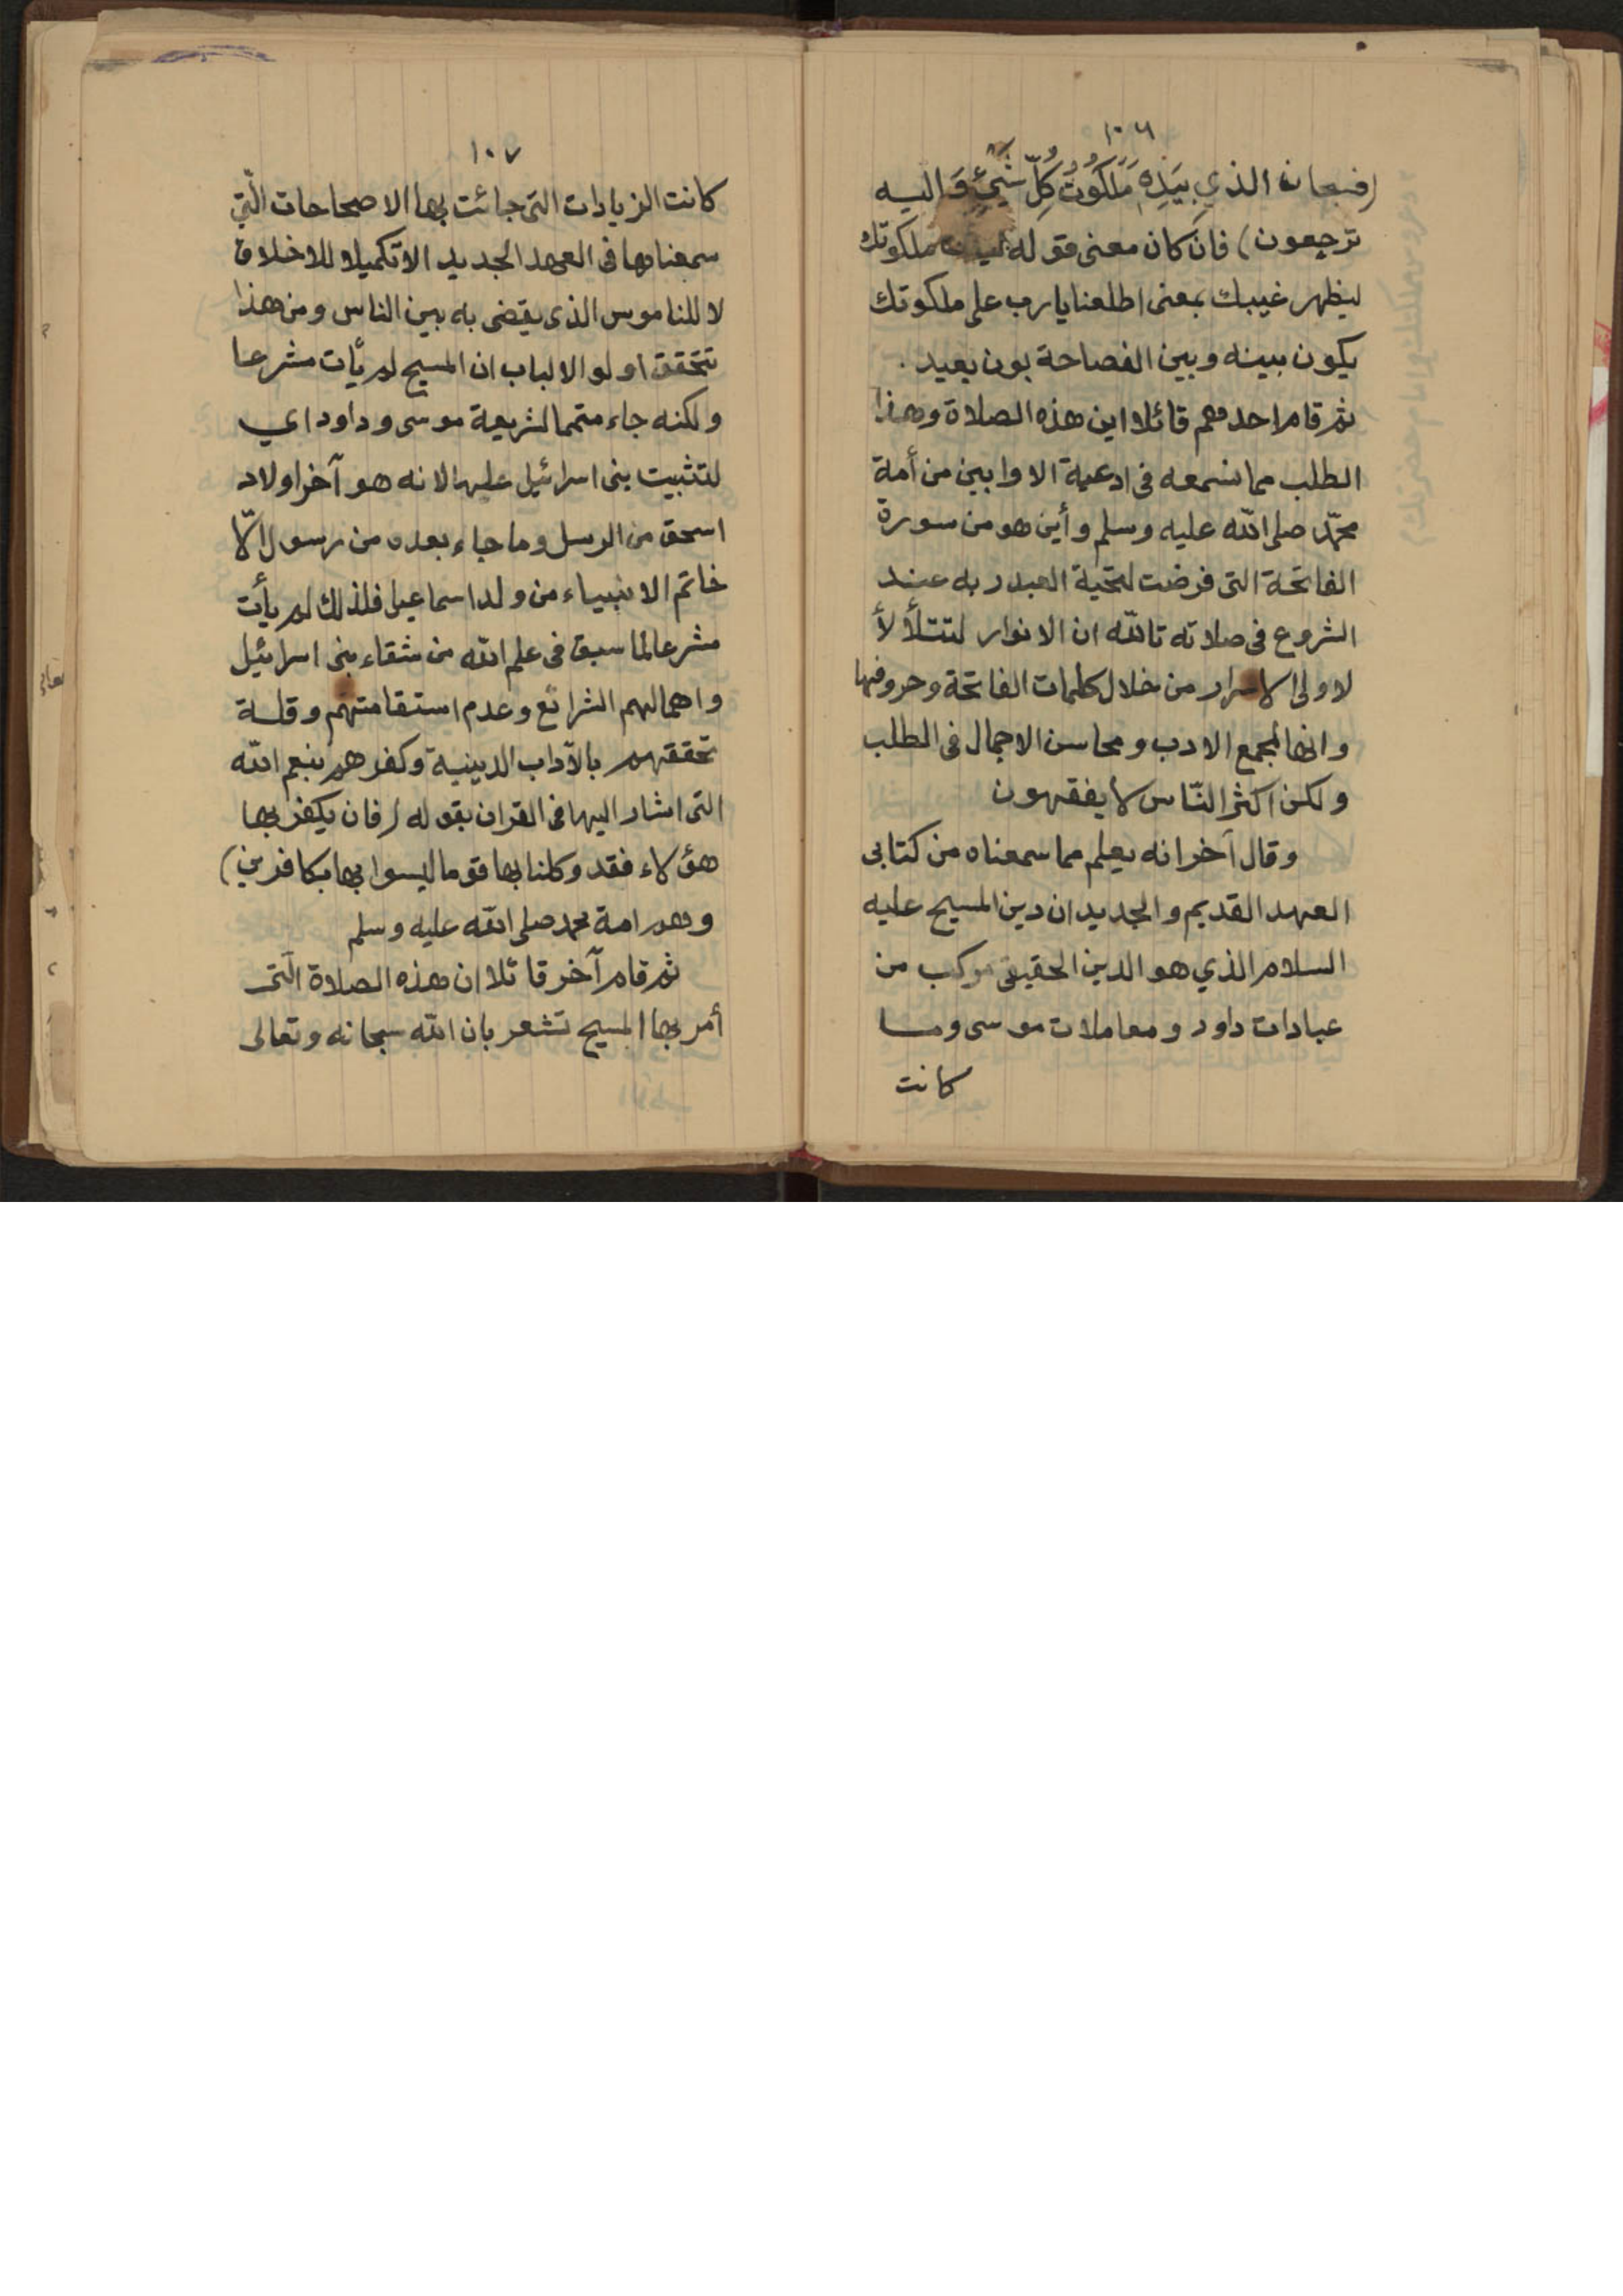 ١٠٦
(فسبحان الذي بِيَدِهِ مَلَكُوتُ كُلِّ شَيْءٍ وَاليه
ترجعون) فان كان معنى قوله ملكوتك
ليظهر غيبك بمعنى اطلعنا يا رب على ملكوتك
يكون بينه وبين الفصاحة بون بعيد .
ثم قام احدهم قائلا اين هذه الصلاة وهذا
الطلب مما نسمعه فى ادعية الاوابين من أمة
محمّد صلى الله عليه وسلم وأين هو من سورة
الفاتحة التى فرضت لتحية العبد ربه عند
الشروع فى صلاته تالله ان الانوار لتتلألأ
لاولى الاسرار من خلال كلمات الفاتحة وحروفها
وانها لمجمع الادب ومحاسن الاجمال فى الطلب
ولكن اكثر النّاس لا يفقهون
وقال آخر انه يعلم مما سمعناه من كتابى
العهد القديم والجديد ان دين المسيح عليه
السلام الذي هو الدين الحقيقى مركب من
عبادات داود ومعاملات موسى وما
كانت
١٠٧
كانت الزيادات التى جائت بها الاصحاحات الّتي
سمعناها فى العهد الجديد الا تكميلا للاخلاق
لا للناموس الذى يقضى به بين الناس ومن هذا
تتحقق اولو الالباب ان المسيح لم يأت مشرعا
ولكنه جاء متمما لشريعة موسى وداود اي
لتثبيت بنى اسرائيل عليها لانه هو آخر اولاد
اسحق من الرسل وما جاء بعده من رسول الّا
خاتم الانبياء من ولد اسماعيل فلذلك لم يأت
مشرعا لما سبق فى علم الله من شقاء بنى اسرائيل
واهمالهم الشرائع وعدم استقامتهم وقلة
تحققهم بالآداب الدينية وكفرهم بنعم الله
التى اشار اليها فى القران بقوله (فان يكفر بها
هؤلاء فقد وكلنا بها قوما ليسوا بها بكافرين)
وهم امة محمد صلى الله عليه وسلم
ثم قام آخر قائلا ان هذه الصلاة الّتى
أمر بها المسيح تشعر بان الله سبحانه وتعالى